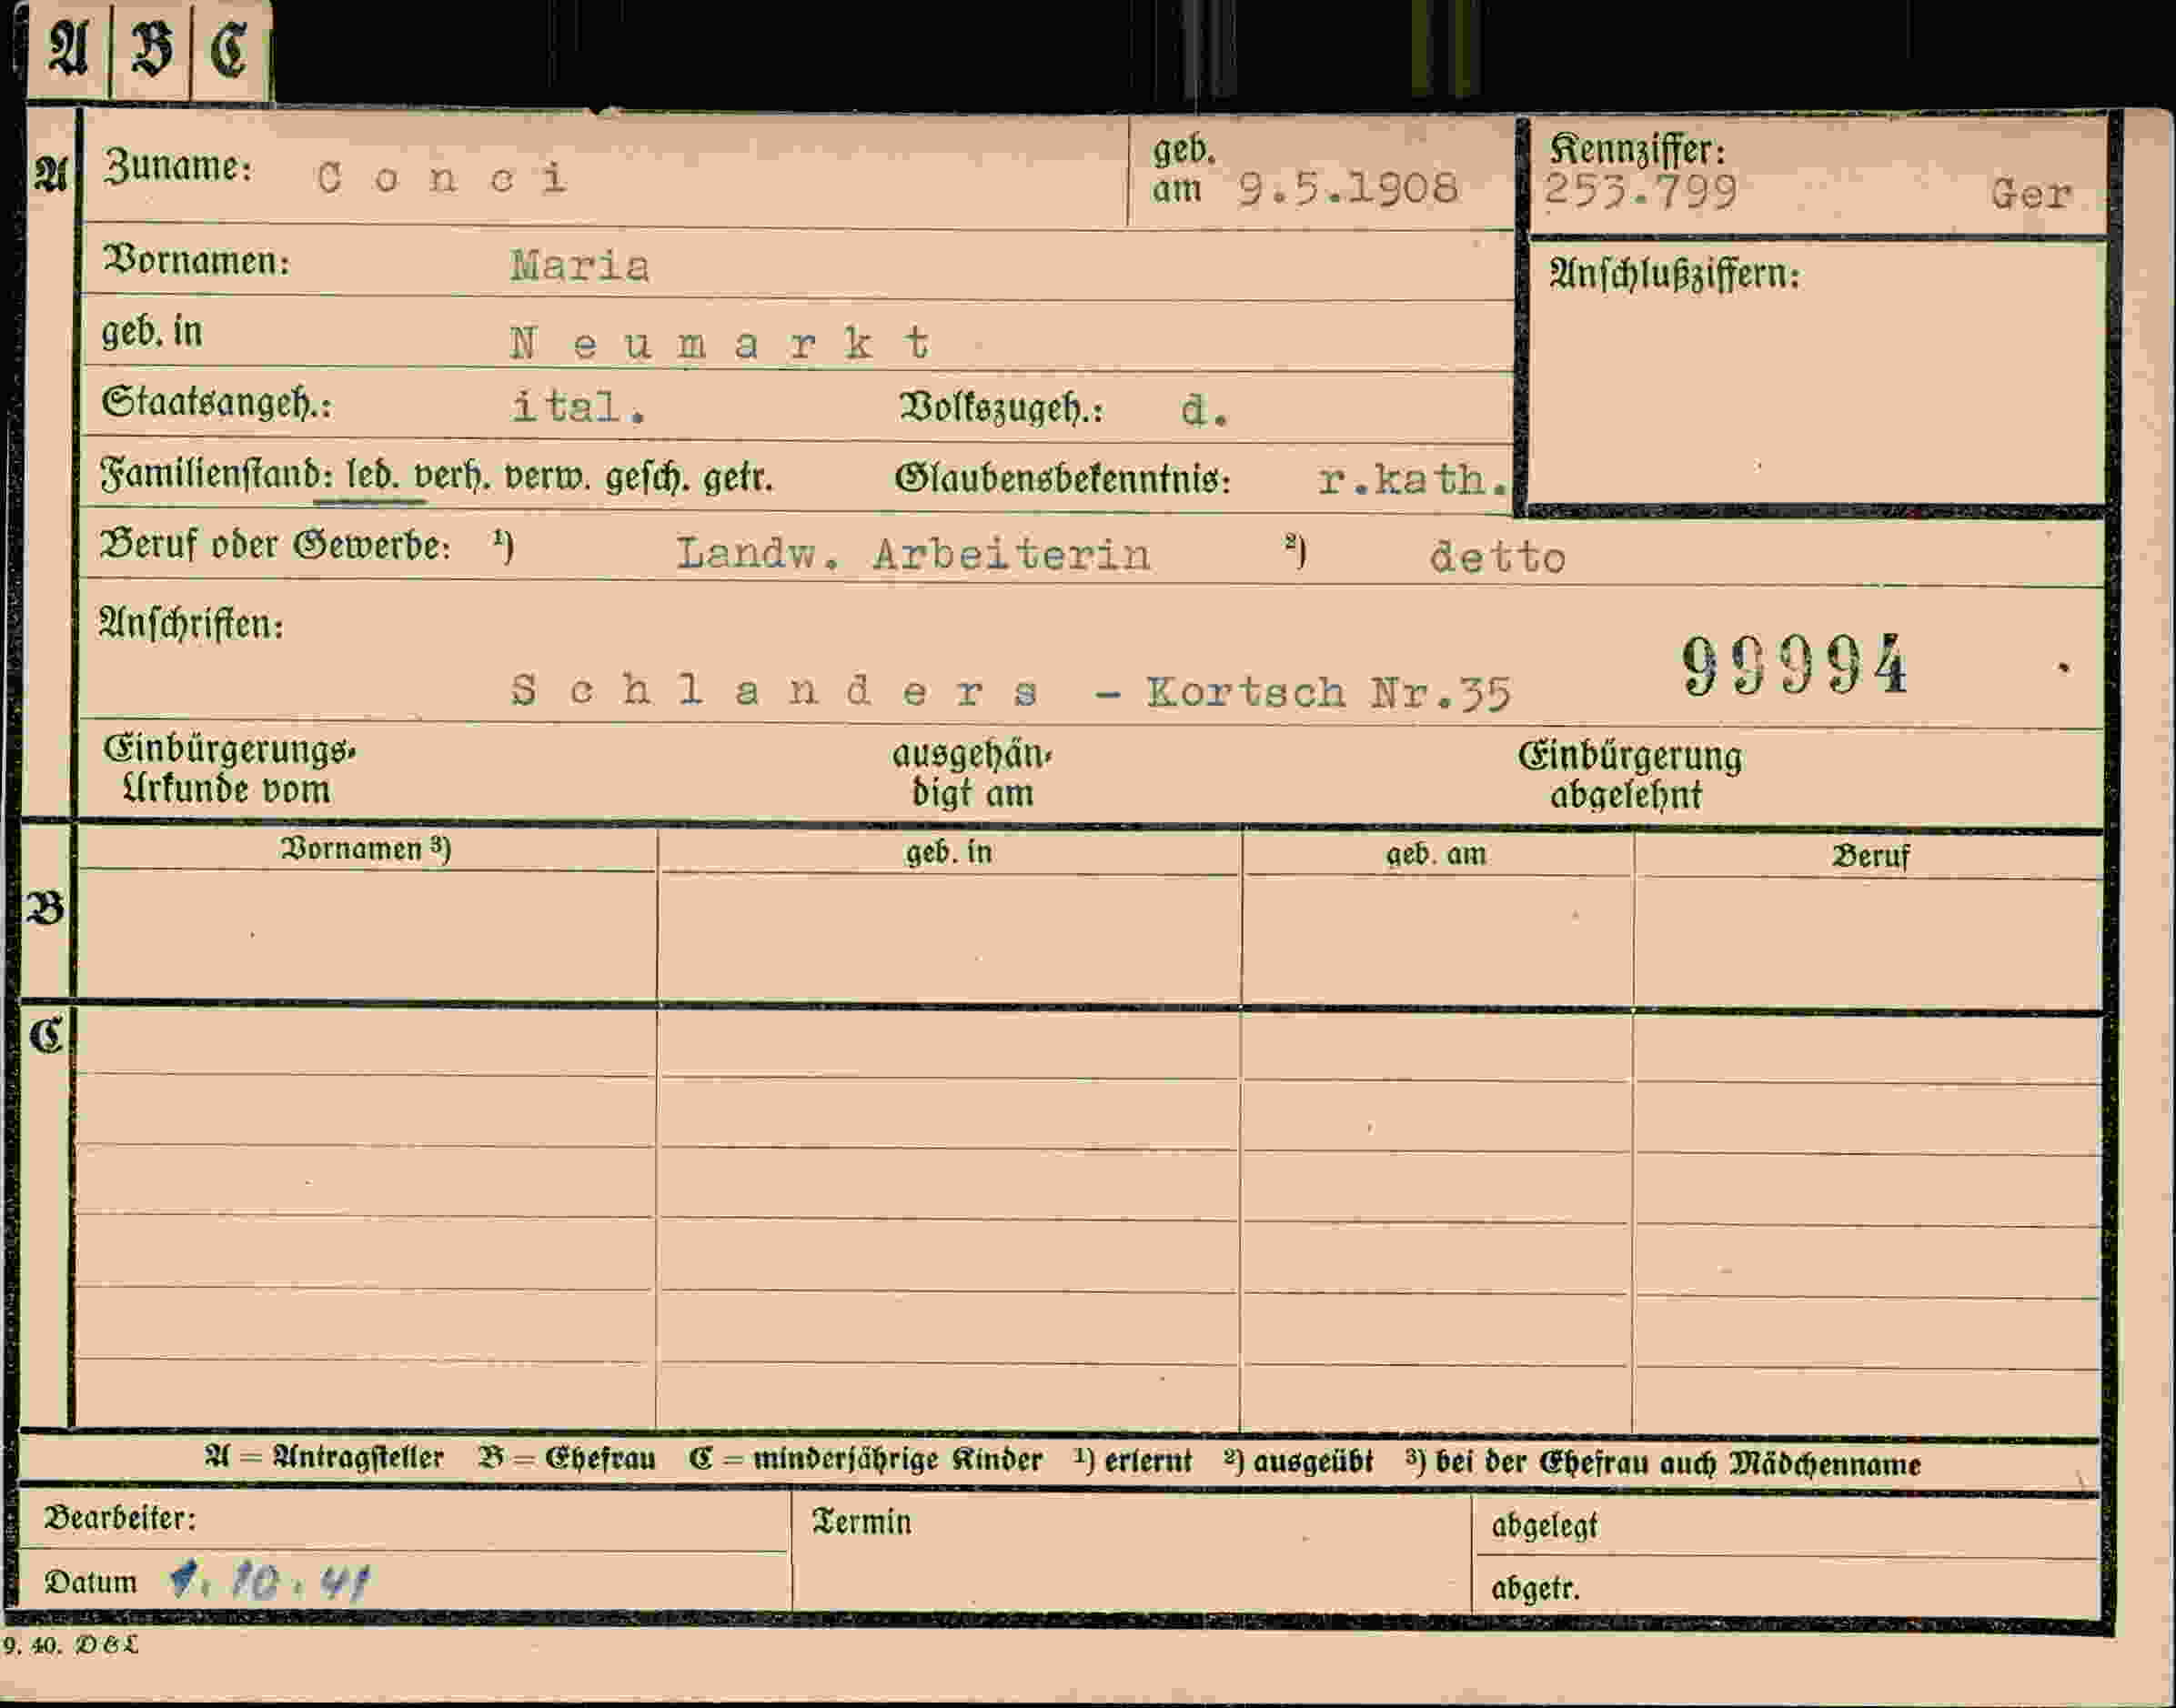 A | B | C
A Zuname: Conci geb. am 9.5.1908 Kennziffer: 253.799 Ger
Vornamen: Maria Anschlußziffern:
geb. in Neumarkt
Staatsangeh.: ital. Volkszugeh.: d.
Familienstand: led. verh. verw. gesch. getr. Glaubensbekenntnis: r.kath.
Beruf oder Gewerbe: ¹) Landw. Arbeiterin ²) detto
Anschriften:
99994
Schlanders - Kortsch Nr.35
Einbürgerungs- ausgehän- Einbürgerung
Urkunde vom digt am abgelehnt
Vornamen ³) geb. in geb. am Beruf
B
C
A = Antragsteller B = Ehefrau C = minderjährige Kinder ¹) erlernt ²) ausgeübt ³) bei der Ehefrau auch Mädchenname
Bearbeiter: Termin abgelegt
Datum 1.10.41 abgetr.
9. 40. D & L